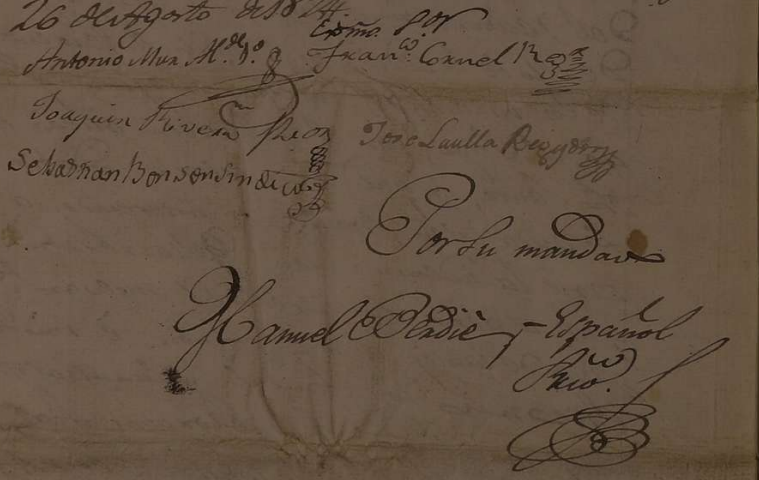 26 de Agosto de 1824.
Exmo. Sor
Antonio Mur Al.de 1.o
Fran.co Cornel Ror
Joaquin Rivera Rior
Jose Laulla Regydor
Sebastian Bonson Sindico
Por su mandao
Manuel Perdie y Español
Srio.